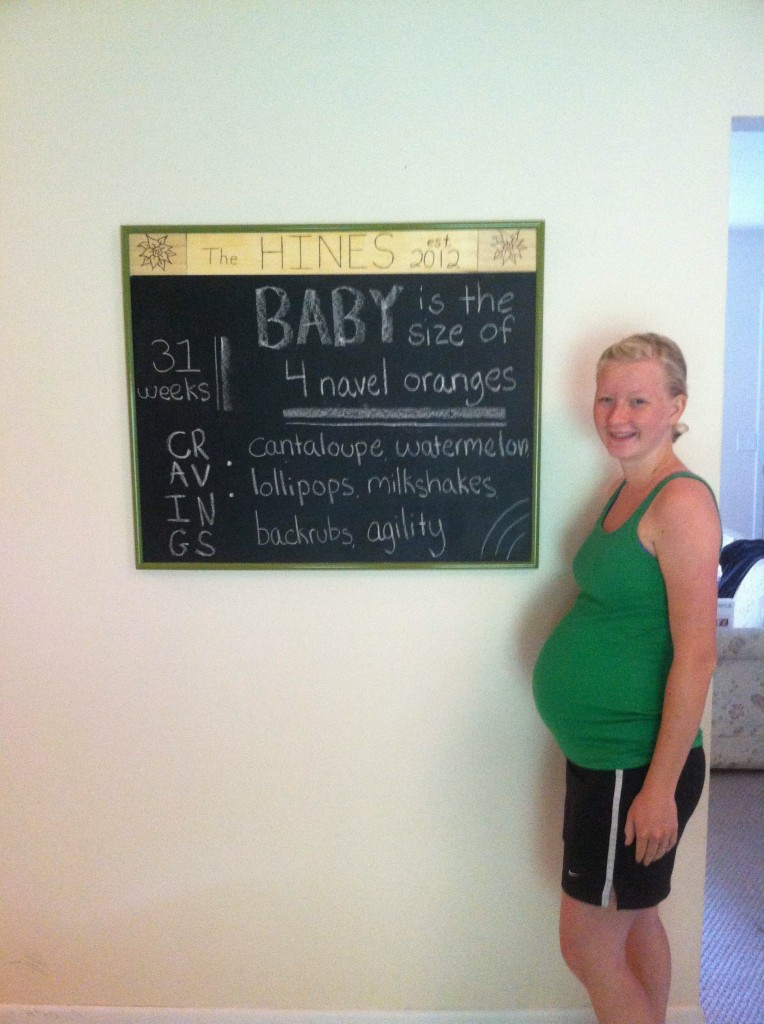 The HINES est. 2012
BABY is the
size of
31
weeks
4 navel oranges
CR
AV
IN
GS
:
cantaloupe, watermelon,
lollipops, milkshakes,
backrubs, agility